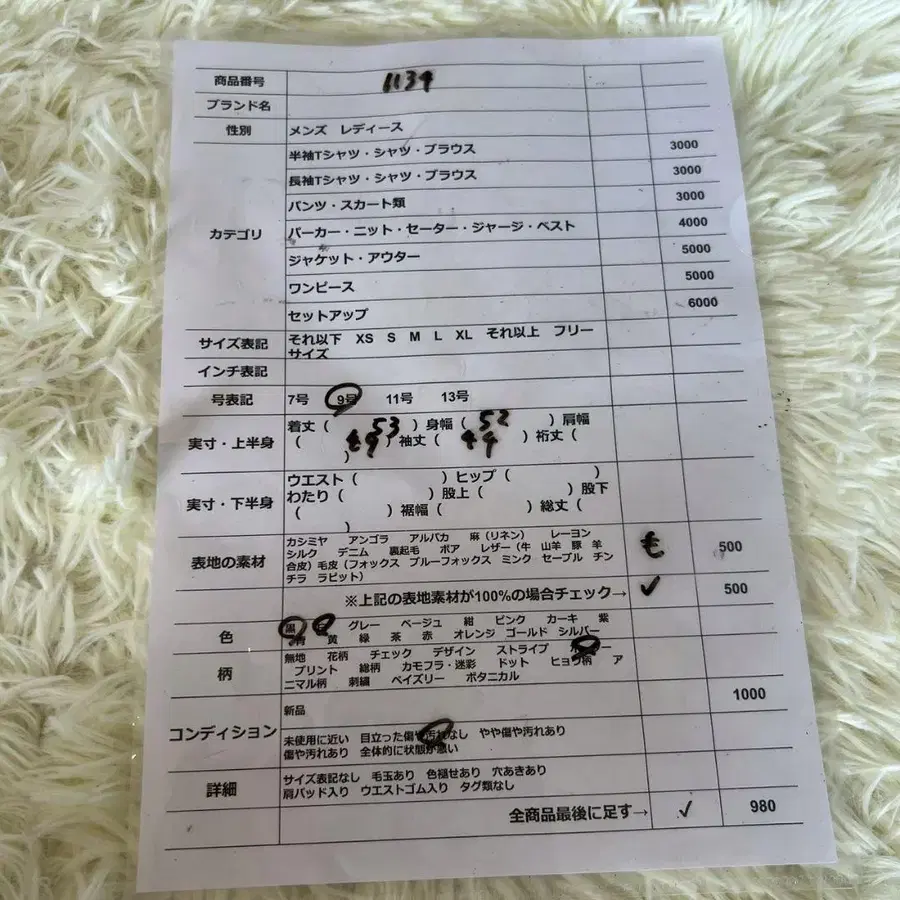 商品番号 1134
ブランド名
性別 メンズ レディース
半袖Tシャツ・シャツ・ブラウス 3000
長袖Tシャツ・シャツ・ブラウス 3000
パンツ・スカート類 3000
カテゴリ パーカー・ニット・セーター・ジャージ・ベスト 4000
ジャケット・アウター 5000
ワンピース 5000
セットアップ 6000
サイズ表記 それ以下 XS S M L XL それ以上 フリー
サイズ
インチ表記
号表記 7号 9号 11号 13号
着丈( 53 )身幅( 52 )肩幅
実寸・上半身 ( )袖丈( 49 )裄丈(
)
ウエスト( )ヒップ( )
実寸・下半身 わたり( )股上( )股下
( )裾幅( )総丈(
)
カシミヤ アンゴラ アルパカ 麻(リネン) レーヨン
表地の素材 シルク デニム 裏起毛 ボア レザー(牛 山羊 豚 羊 500
合皮)毛皮(フォックス ブルーフォックス ミンク セーブル チン
チラ ラビット)
※上記の表地素材が100%の場合チェック→ ✓ 500
色 黒 グレー ベージュ 紺 ピンク カーキ 紫
青 黄 緑 茶 赤 オレンジ ゴールド シルバー
柄 無地 花柄 チェック デザイン ストライプ
プリント 総柄 カモフラ・迷彩 ドット ヒョウ柄 ア
ニマル柄 刺繍 ペイズリー ボタニカル
新品 1000
コンディション 未使用に近い 目立った傷や汚れなし やや傷や汚れあり
傷や汚れあり 全体的に状態が悪い
詳細 サイズ表記なし 毛玉あり 色褪せあり 穴あきあり
肩パッド入り ウエストゴム入り タグ類なし
全商品最後に足す→ ✓ 980